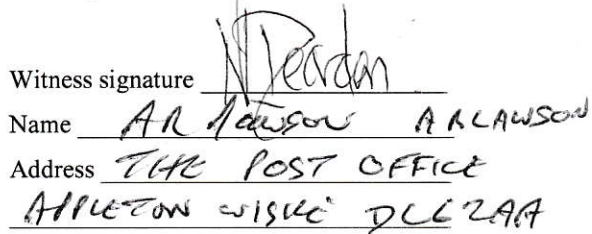 Witness signature
Name AR Lawson ARLAWSON
Address THE POST OFFICE
APPLETON WISKE DL6 2AA